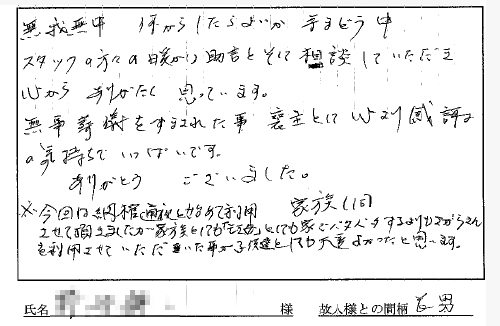 無我無中 何からしたらよいか 等まどう中
スタッフの方々の暖かい助言とそして相談していただき
心から ありがたく 思っています。
無事葬儀をすまされた事 喪主として 心より感謝
の気持ちで いっぱいです。
ありがとう ございました。
家族一同
※今回は納棺 を始めて利用
させて頂きましたが家族としても とても家で バタバタするよりも さん
を利用させていただき いた事が 子供達としても大変よかったと思います。
氏名 様 故人様との間柄 長男